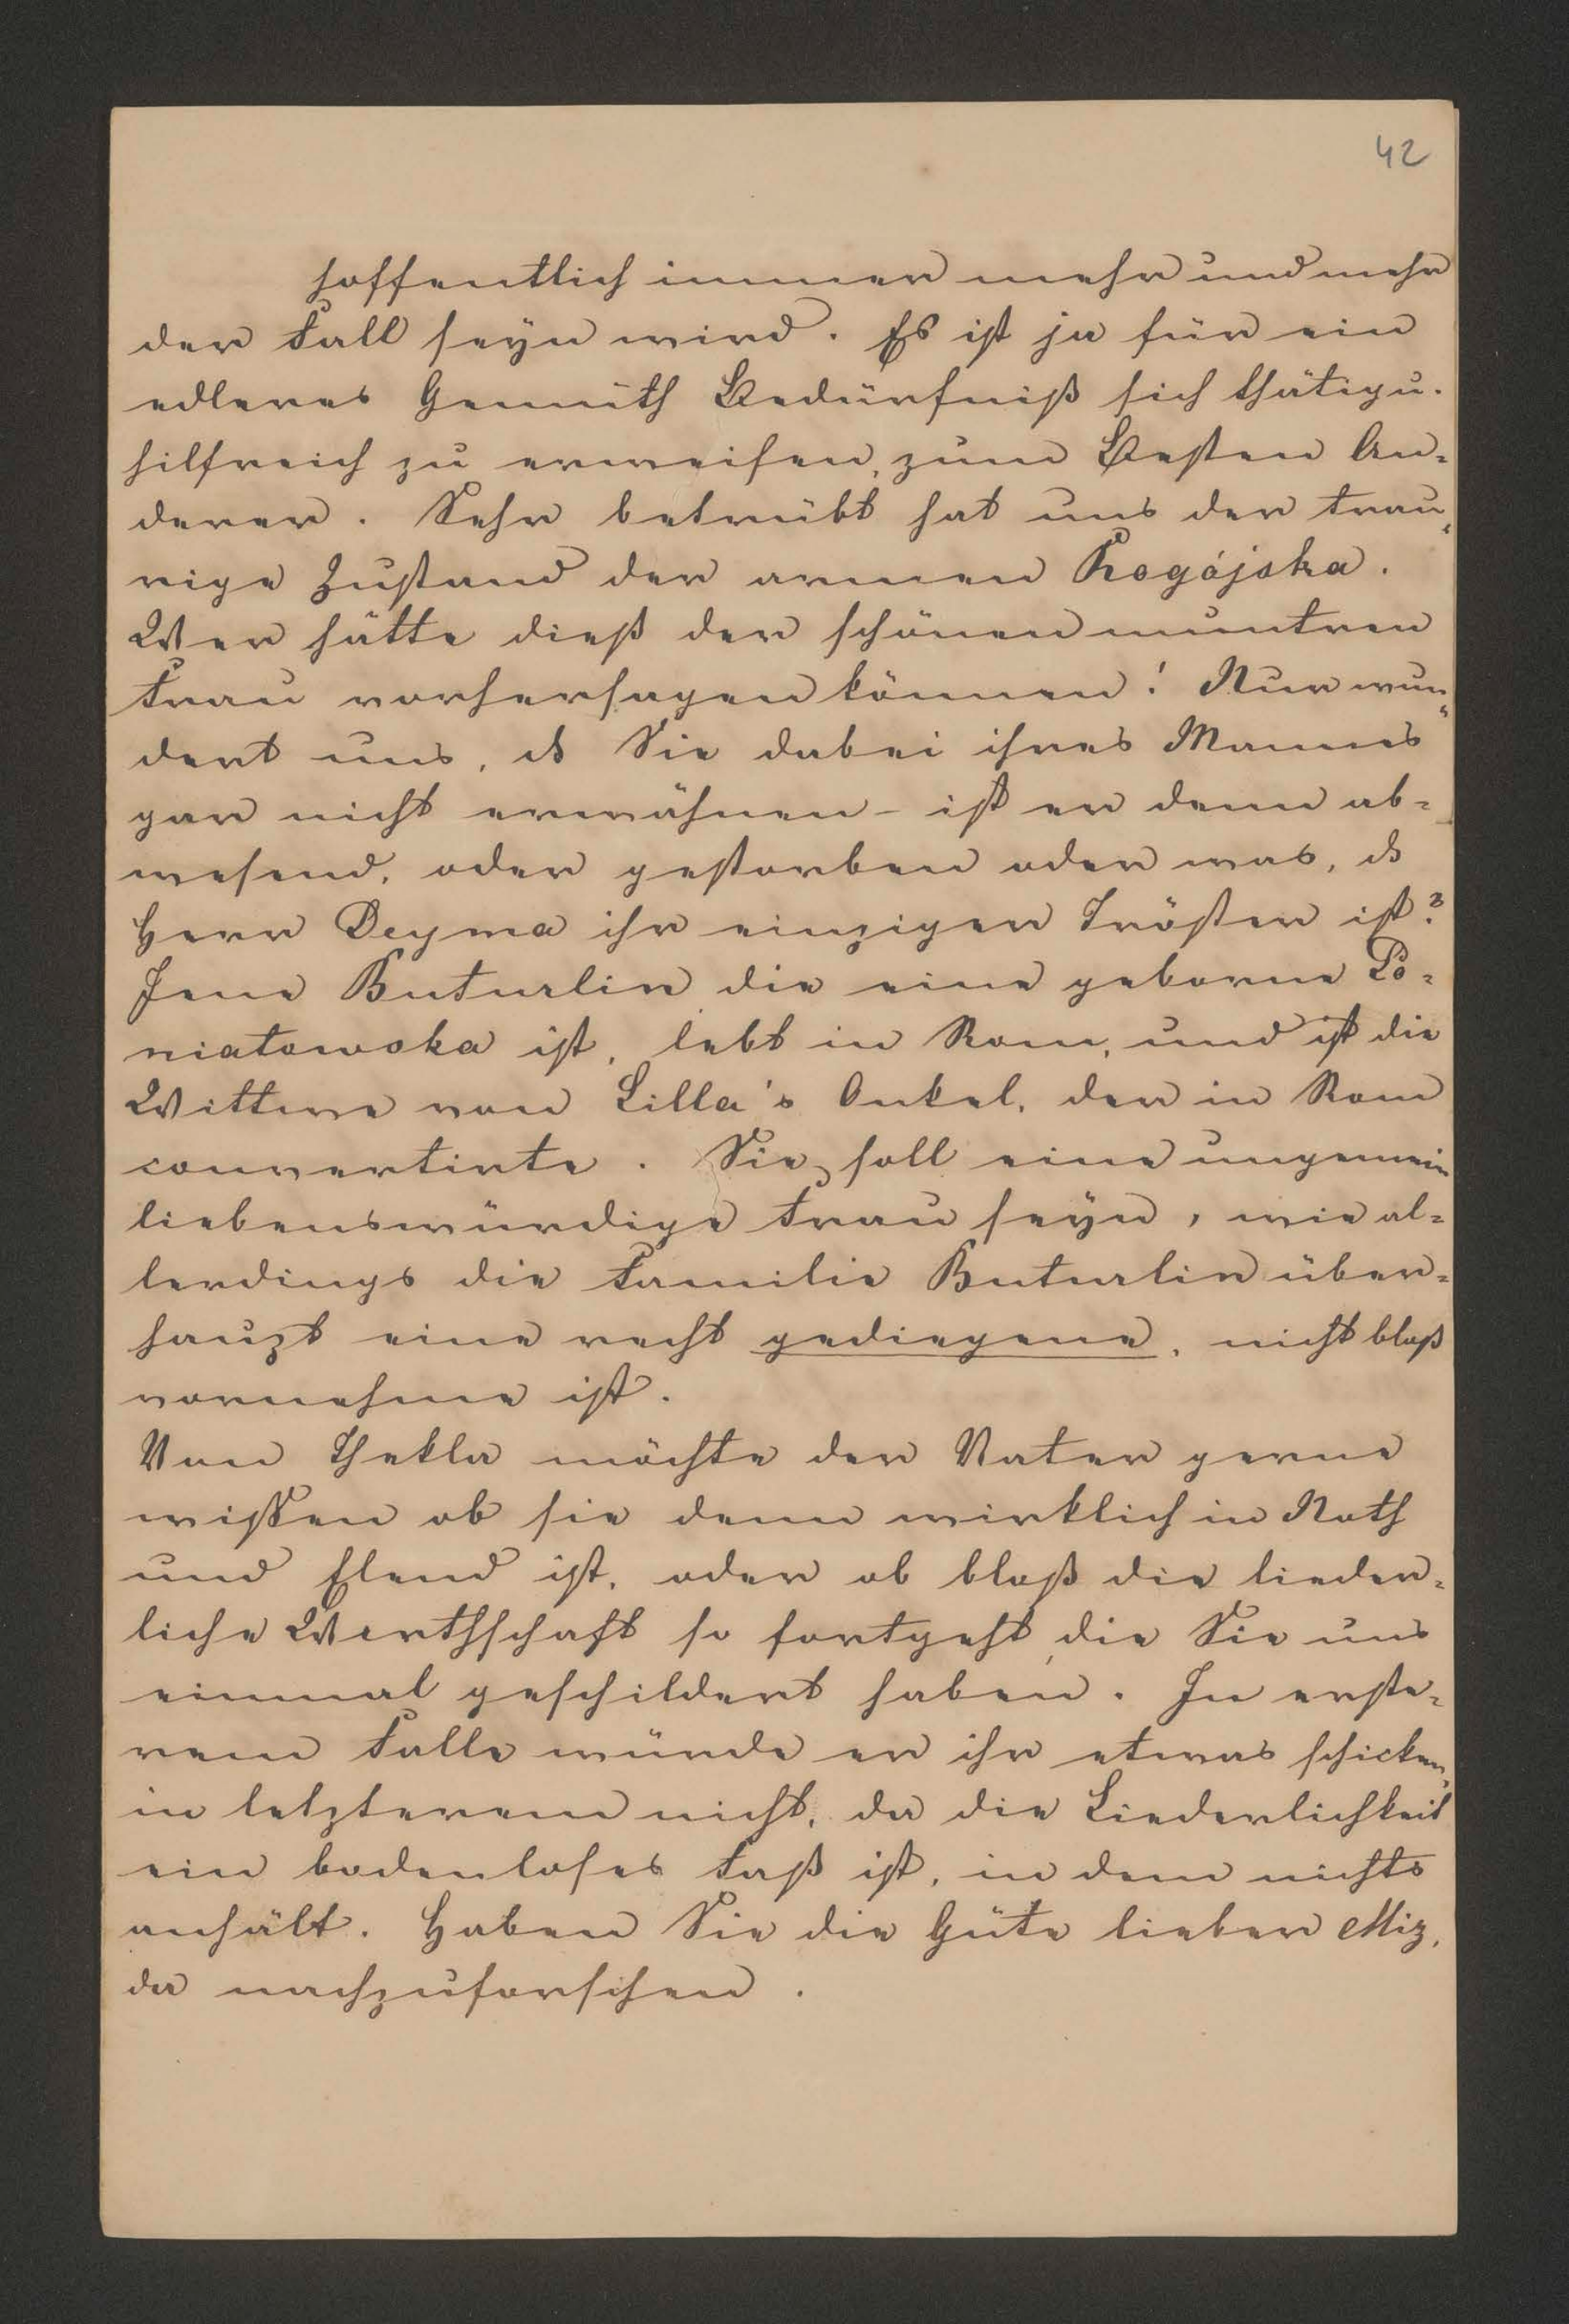 42
hoffentlich immer mehr und mehr
der Fall seyn wird. Es ist ja für ein
edleres Gemüth Bedürfniß sich thätig u.
hilfreich zu erweisen, zum Besten An=
derer. Sehr betrübt hat uns der trau=
rige Zustand der armen Rogójska.
Wer hätte dieß der schönen muntren
Frau vorhersagen können! Nur wun=
dert uns, ds Sie dabei ihres Mannes
gar nicht erwähnen - ist er denn ab=
wesend, oder gestorben oder was, ds
Herr Deyma ihr einziger Tröster ist?
Jene Buturlin die eine geborne Po=
niatowska ist, lebt in Rom, und ist die
Wittwe von Lilla's Onkel, der in Rom
convertirte. Sie soll eine ungemein
liebenswürdige Frau seyn, wie al=
lerdings die Familie Buturlin über=
haupt eine recht gediegene, nicht bloß
vornehme ist.
Von Thekla möchte der Vater gerne
wissen ob sie denn wirklich in Noth
und Elend ist, oder ob bloß die lieder=
liche Wirthschaft so fortgeht, die Sie uns
einmal geschildert haben. In erste=
rem Falle würde er ihr etwas schicken,
in letzterem nicht, da die Liederlichkeit
ein bodenloses Faß ist, in dem nichts
anhält. Haben Sie die Güte lieber Miz,
da nachzuforschen.